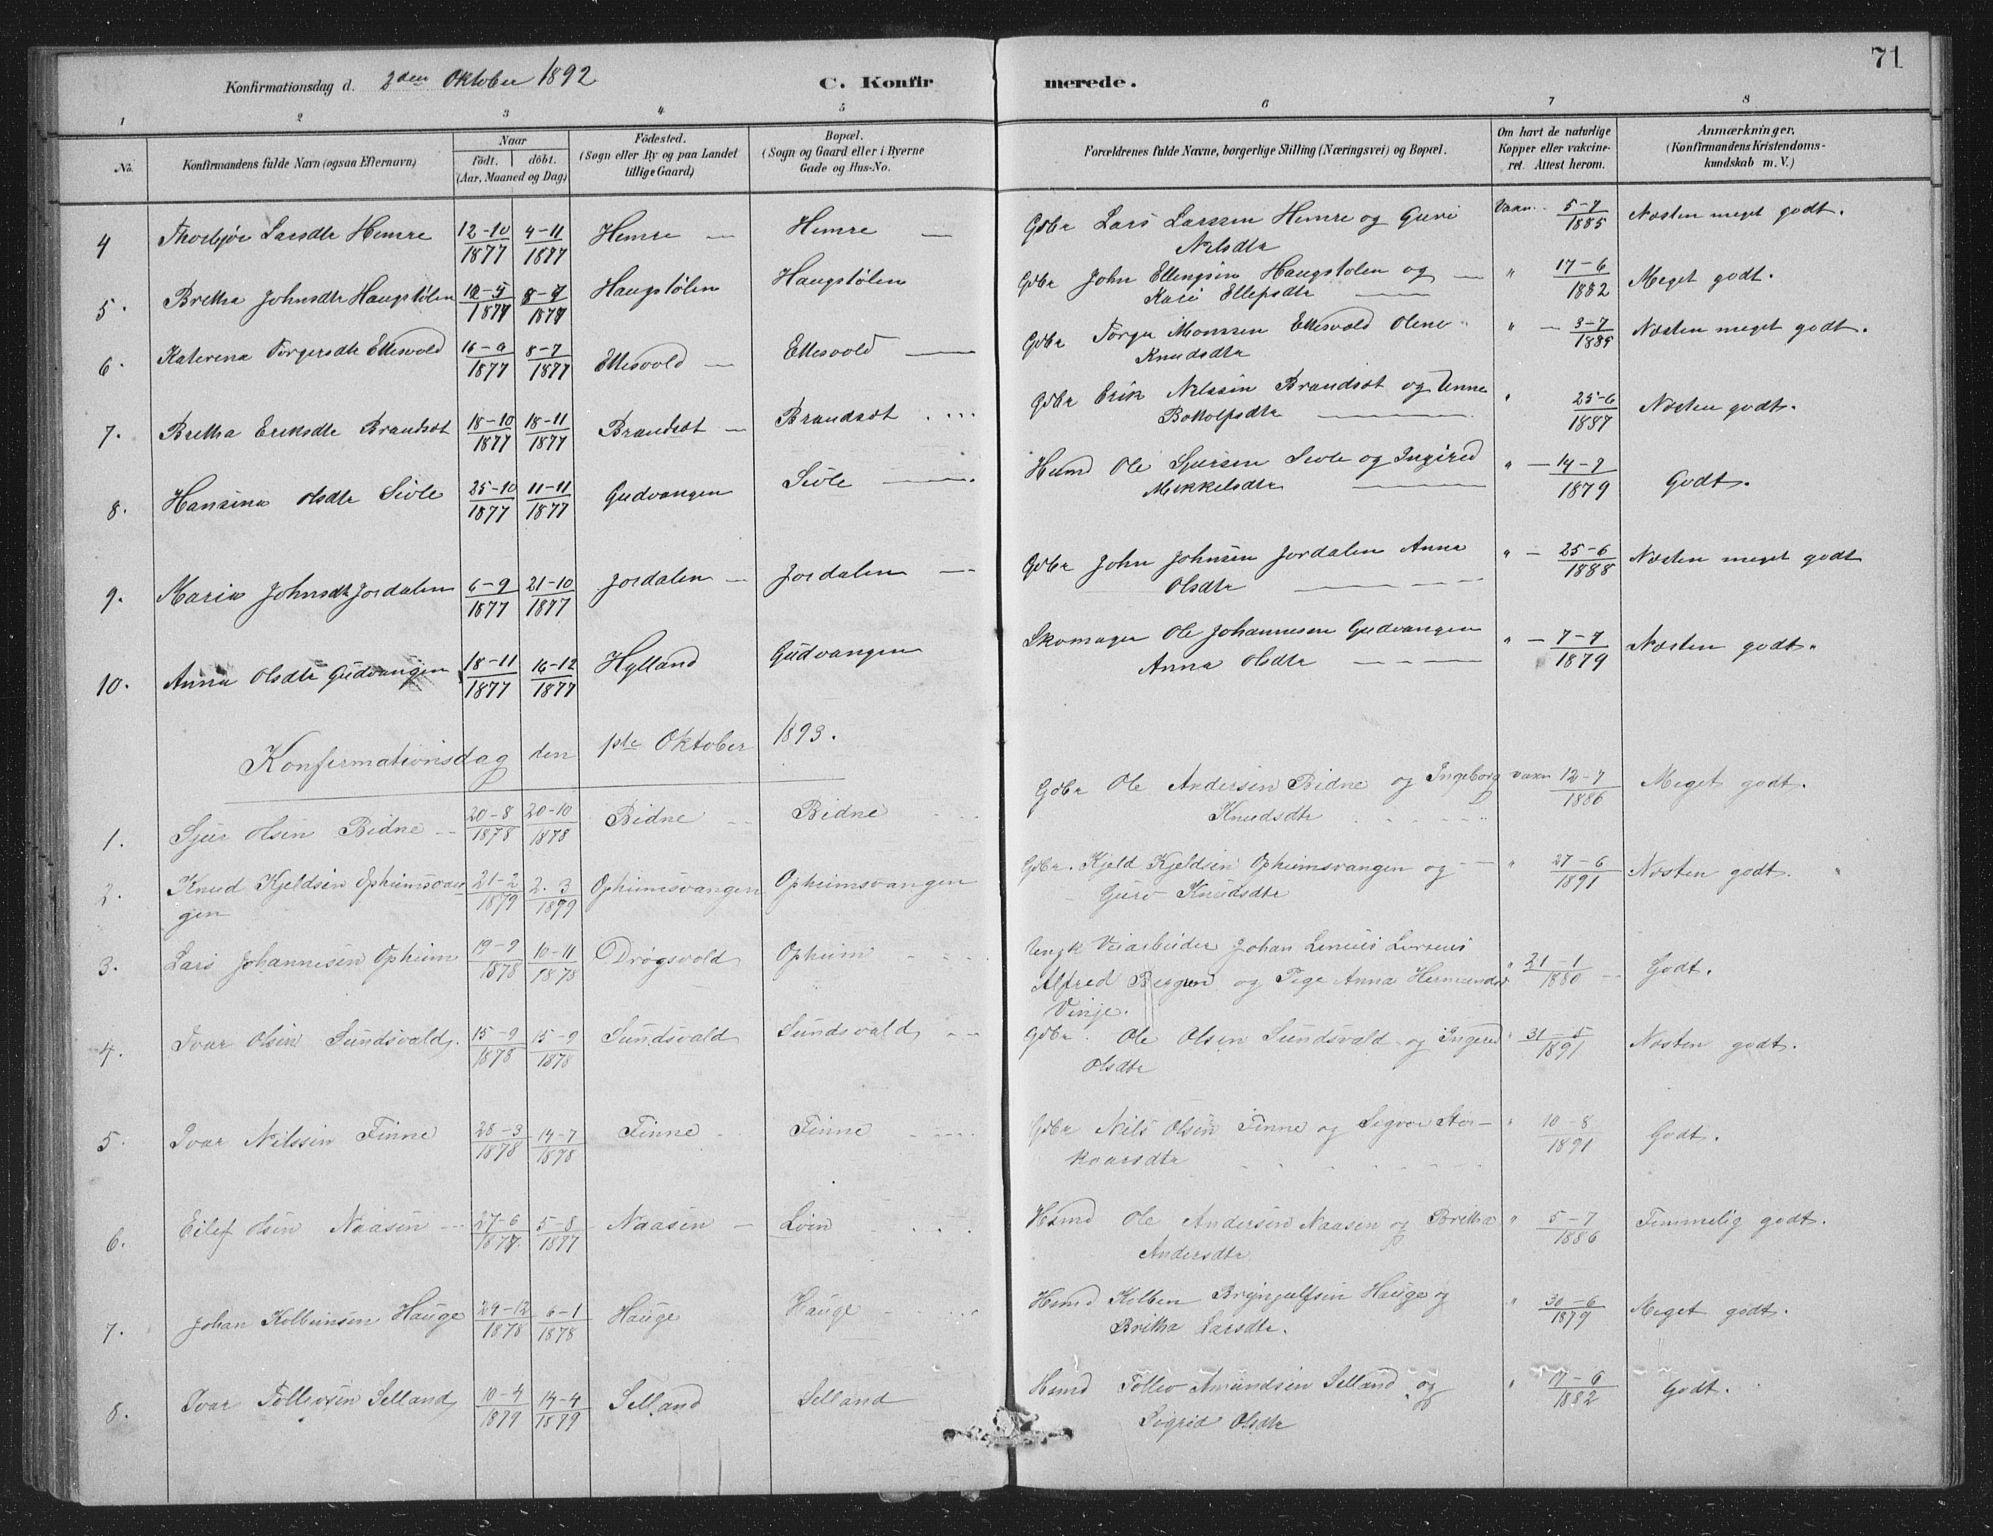 71
Konfirmationsdag d. 2den Oktober 1892
C. Konfir merede.
1 2 3 4 5 6 7 8
No. Konfirmandens fulde Navn (ogsaa Efternavn) Naar født. døbt. (Aar, Maaned og Dag) Fødested. (Sogn eller By og paa Landet tillige Gaard) Bopæl. (Sogn og Gaard eller i Byerne Gade og Hus-No. Forældrenes fulde Navne, borgerlige Stilling (Næringsvei) og Bopæl. Om havt de naturlige Kopper eller vakcineret. Attest herom. Anmærkninger. (Konfirmandens Kristendomskundskab m. V.)
4 Thorbjør Larsdtr Hemre 12-10 1877 4-11 1877 Hemre Hemre Gdbr Lars Larssen Hemre og Guri Nilsdtr Vaxn. 5-7 1885 Næsten meget godt.
5. Britha Johnsdtr Haugstølen 1877 1877 Haugstølen Haugstølen Gdbr John Ellingsen Haugstølen og Kari Ellefsdtr " 17-6 1882 Meget godt.
6. Katerina Torgersdtr Ettesvold 1877 8-7 1877 Ettesvold Ettesvold Gdbr Torger Monssen Ettesvold Olene Knudsdtr " 3-7 Næsten meget godt.
7. Britha Eriksdtr Brandsæt 18-10 1877 18-11 1877 Brandsæt Brandsæt Gdbr Erik Nilssen Brandsæt og Unne Botolfsdtr " 25-6 1887 Næsten godt.
8. Hansina Olsdtr Sivle 25-10 1877 11-11 1877 Gudvangen Sivle Husmd Ole Sjursen Sivle og Ingired Mikkelsdtr " 14-7 1879 Godt.
9. Maria Johnsdtr Jordalen 6-9 1877 21-10 1877 Jordalen Jordalen Gdbr John Johnsen Jordalen Anna Olsdtr " 25-6 1888 Næsten meget godt
10. Anna Olsdtr Gudvangen 18-11 1877 16-12 1877 Hylland Gudvangen Skomager Ole Johannesen Gudvangen Anna Olsdtr " 7-7 1879 Næsten godt.
Konfirmationsdag den 1ste Oktober 1893.
1. Sjur Olsen Bidne 20-8 1878 20-10 1878 Bidne Bidne Gdbr Ole Andersen Bidne og Ingeborg Knudsdtr vaxn 12-7 1886 Meget godt.
2. Knud Kjeldsen Opheimsvangen 21-2 1879 2.3 1879 Opheimsvangen Opheimsvangen Gdbr. Kjeld Kjeldsen Opheimsvangen og Guro Knudsdtr " 27-6 1891 Næsten godt.
3. Lars Johannesen Opheim 19-9 1878 10-11 1878 Drøgsvold Opheim Ungk Veiarbeider Johan Alfred Bergen og Pige Anna Hermundsd Vinje. " 21-1 1880 Godt.
4. Ivar Olsen Sundsvald. 15-9 1878 15-9 1878 Sundsvald Sundsvald Gdbr. Ole Olsen Sundsvald og Ingered Olsdtr " 31-5 1891 Næsten godt.
5. Ivar Nilssen Finne 28-3 1878 14-7 1878 Finne Finne Gdbr Nils Olsen Finne og Sigvor Storkaarsdtr " 10-8 1891 Godt.
6. Eilef Olsen Naasen 27-6 1877. 5-8 1877 Naasen Løin Husmd Ole Andersen Naasen og Britha Andersdtr " 5-7 1886 Temmelig godt.
7. Johan Kolbeinsen Hauge 24-12 1878 6-1 1878 Hauge Hauge Husmd Kolben Brynjulfsen Hauge og Britha Larsdtr. " 30-6 1879 Meget godt.
8. Ivar Tollevsen Selland 10-4 1879 14-4 1879 Selland Selland Husmd Tollev Amundsen Selland og Sigrid Olsdtr " 17-6 1882 Godt.